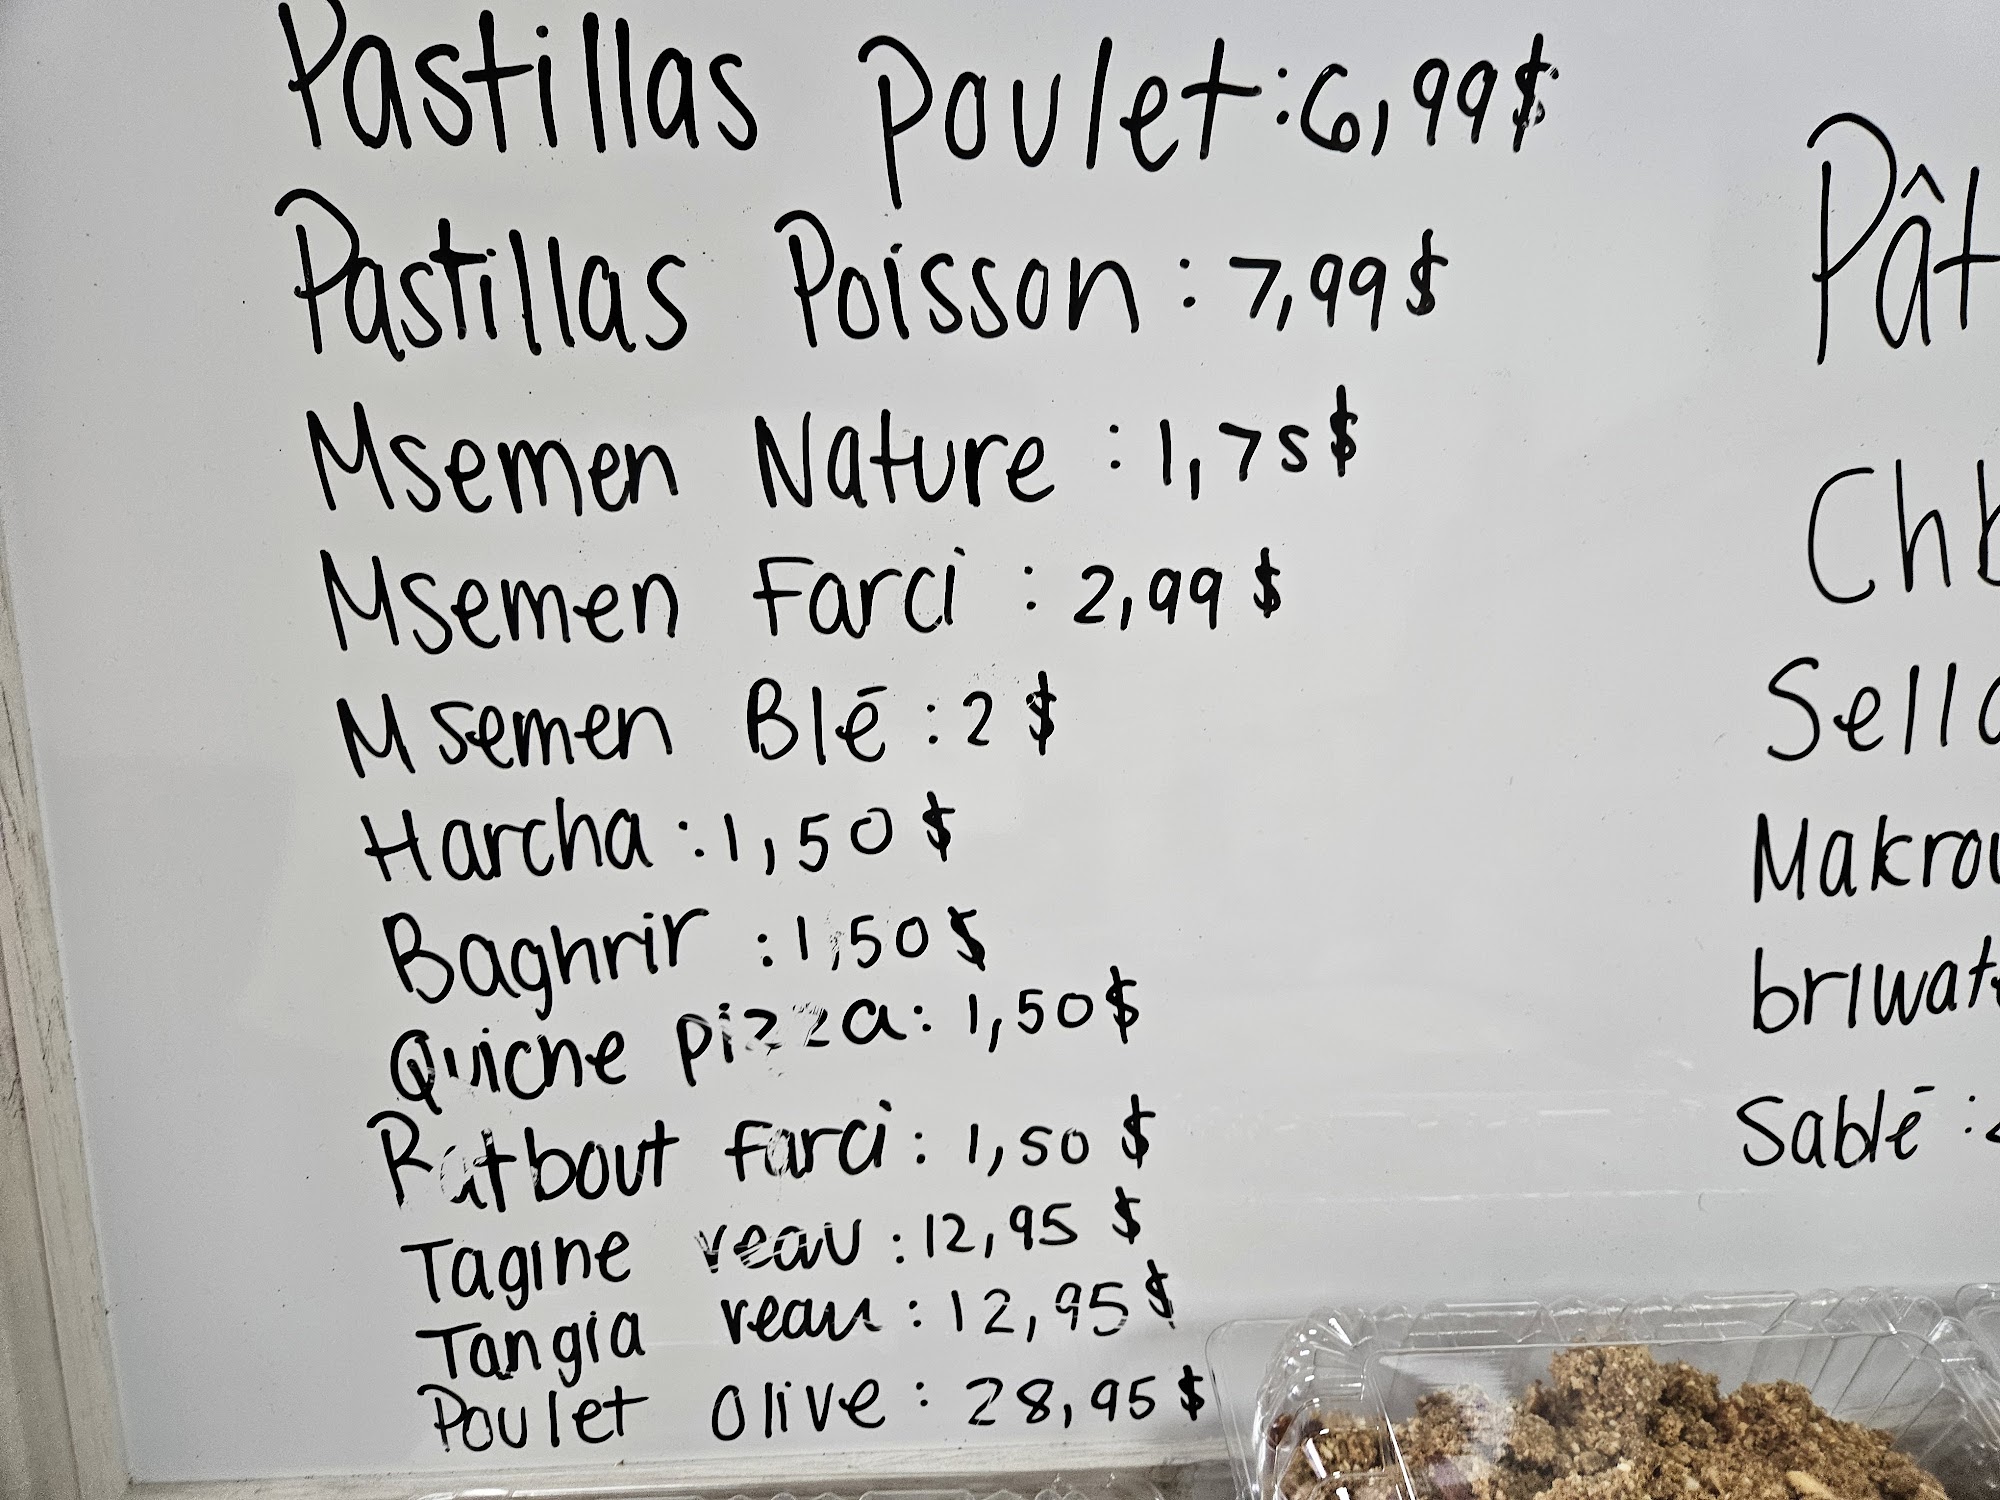 Pastillas Poulet : 6,99$
Pastillas Poisson : 7,99$
Msemen Nature : 1,75$
Msemen Farci : 2,99$
Msemen Blé : 2$
Harcha : 1,50$
Baghrir : 1,50$
Quiche pizza : 1,50$
Ratbout farci : 1,50$
Tagine veau : 12,95$
Tangia veau : 12,95$
Poulet olive : 28,95$
Pât
Chb
Sella
Makrou
briwat
Sablé :